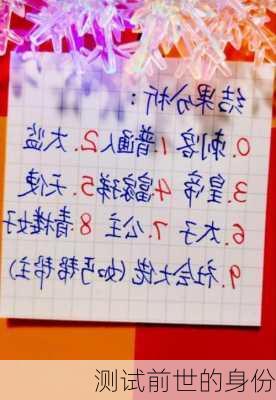 结果分析：
0.刺客 1.普通人 2.太监
3.皇帝 4. 5.天使
6.太子 7.公主 8.青楼女子
9.社会大佬(如丐帮帮主)
测试前世的身份